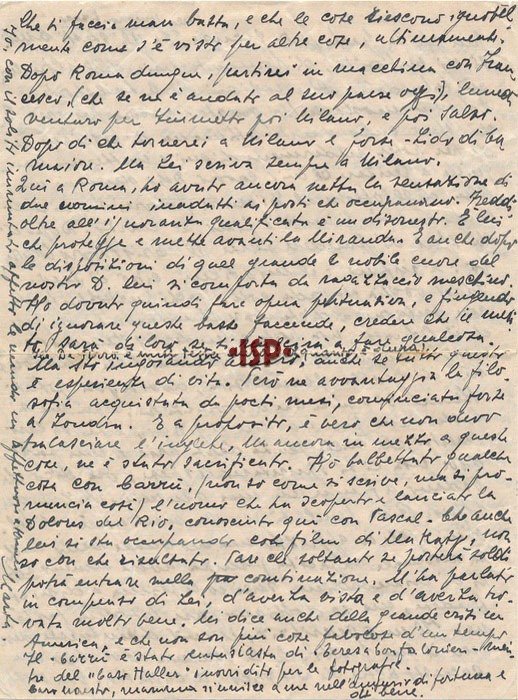 che ti faccia man bassa, e che le cose riescono, ignobil
mente come s'è visto per altre cose, ultimamente.
Dopo Roma dunque, partirei in macchina con Fran
cesco, (che se ne è andato al suo paese oggi), lunedì
venturo per poi Milano, e poi Salso.
Dopo di che tornerei a Milano e forse - Lido di Ca
maiore. Ma Lei scriva sempre a Milano.
Qui a Roma, ho avuto ancora netta la sensazione di
due uomini inadatti ai posti che occupano. Freddi
oltre all'ignoranza qualificata è un disonesto. E lui
che protegge e mette avanti la Miranda. E anche dopo
le disposizioni di quel grande e nobile cuore del
nostro D. lui si comporta da ragazzaccio meschino.
Ho dovuto quindi fare opera persuativa, e fingendo
di ignorare queste basse faccende, creder che il meri
to sarà di loro se a fare qualcosa.
Ma sto ingoiando amaro, anche se tutto questo
è esperienza di vita. Però ne avvantaggia la filo
sofia acquistata da pochi mesi, cominciata forse
a Londra. E a proposito, è vero che non devo
tralasciare l'inglese, ma ancora in mezzo a queste
cose, ne è stato sacrificato. Ho balbettato qualche
cosa con Carrù, (non so come si scrive, ma si pro
nuncia così) l'uomo che ha scoperto e lanciato la
Dolores del Rio, conosciuto qui con Pascal. Che anche
lui si sta occupando col film di , non
so con che risultato. Pare che soltanto se porterà soldi
potrà entrare nella combinazione. M'ha parlato
in compenso di Lei, d'averla vista e d'averla tro
vata molto bene. Lei dice anche della grande crisi in
America, e che non son più cose favolose d'un tempo
Il Carrù è stato entusiasta di Teresa Confalonieri - men
tre del "Caso Haller" inorridito per la fotografia.
Caro nostro, mamma si unisce a me nell'augurio di fortuna e
di bene.
Io, con il solito immutato affetto la mando un affettuoso
Marta.
•ISP•